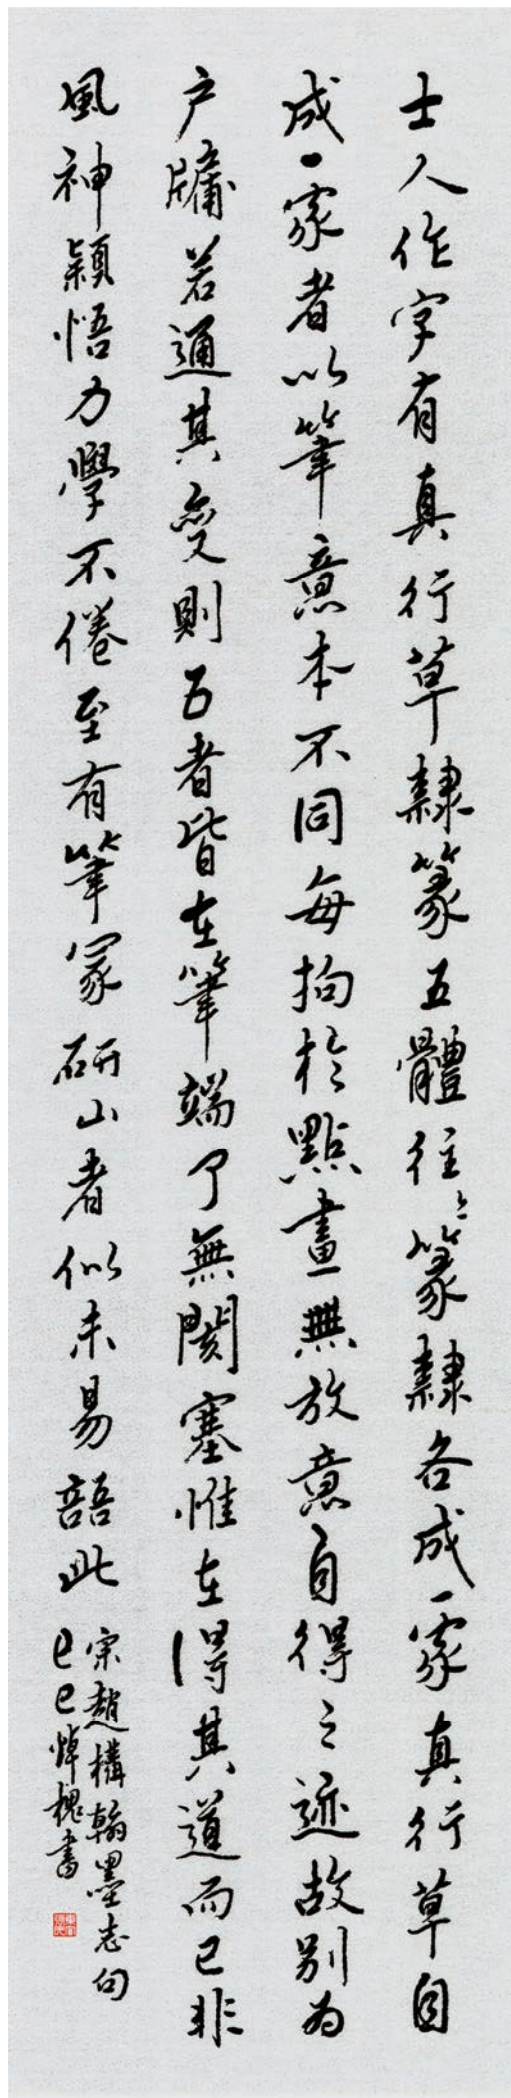 士人作字有真行草隸篆五體往々篆隸各成一家真行草自
成一家者以筆意本不同每拘於點畫無放意自得之迹故別為
户牖若通其變則五者皆在筆端了無閡塞惟在得其道而已非
風神穎悟力學不倦至有筆冢研山者似未易語此
宋趙構翰墨志句
己巳焯槐書